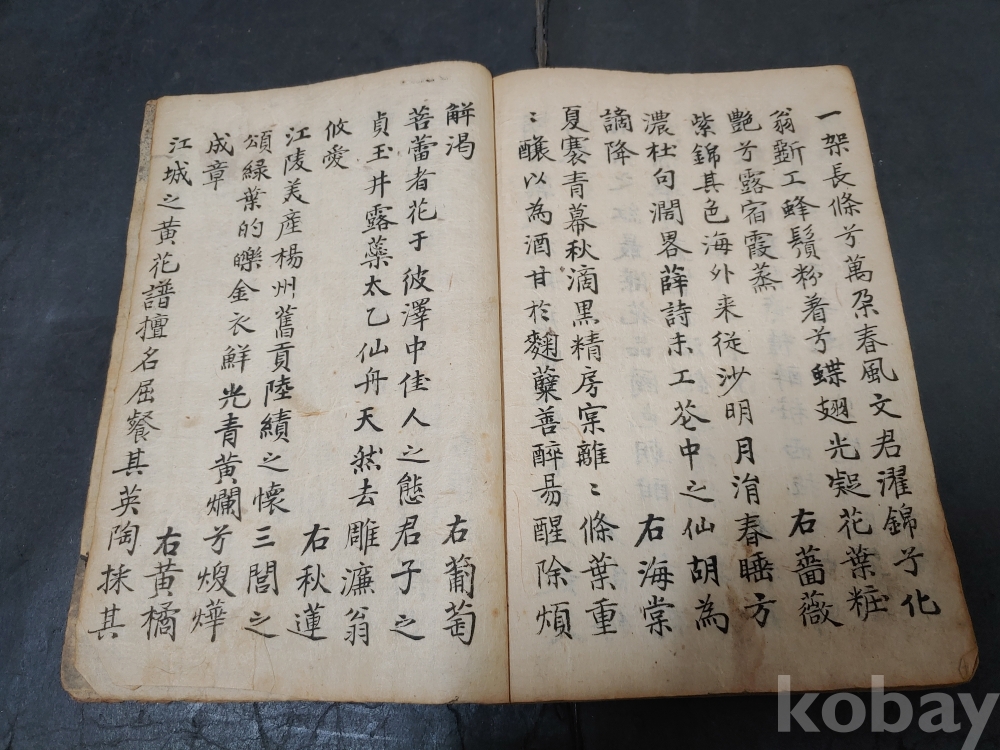 一架長條兮萬朶春風文君濯錦兮化
翁斲工蜂鬚粉着兮蝶翅光凝花葉粧
艶兮露宿霞蒸 右薔薇
紫錦其色海外来従沙明月涓春睡方
濃杜句濶畧薛詩未工花中之仙胡為
謫降 右海棠
夏褰青幕秋滴黒精房寀離〻條葉重
〻釀以為酒甘於麴糵善醉易醒除煩
觧渴 右葡萄
菩蕾者花于彼澤中佳人之態君子之
貞玉井露藥太乙仙舟天然去雕濂翁
攸愛 右秋蓮
江陵美産楊州舊貢陸績之懷三閭之
頌緑葉的皪金衣鮮光青黄爛兮煌燁
成章 右黄橘
江城之黄花譜擅名屈餐其英陶採其
kobay